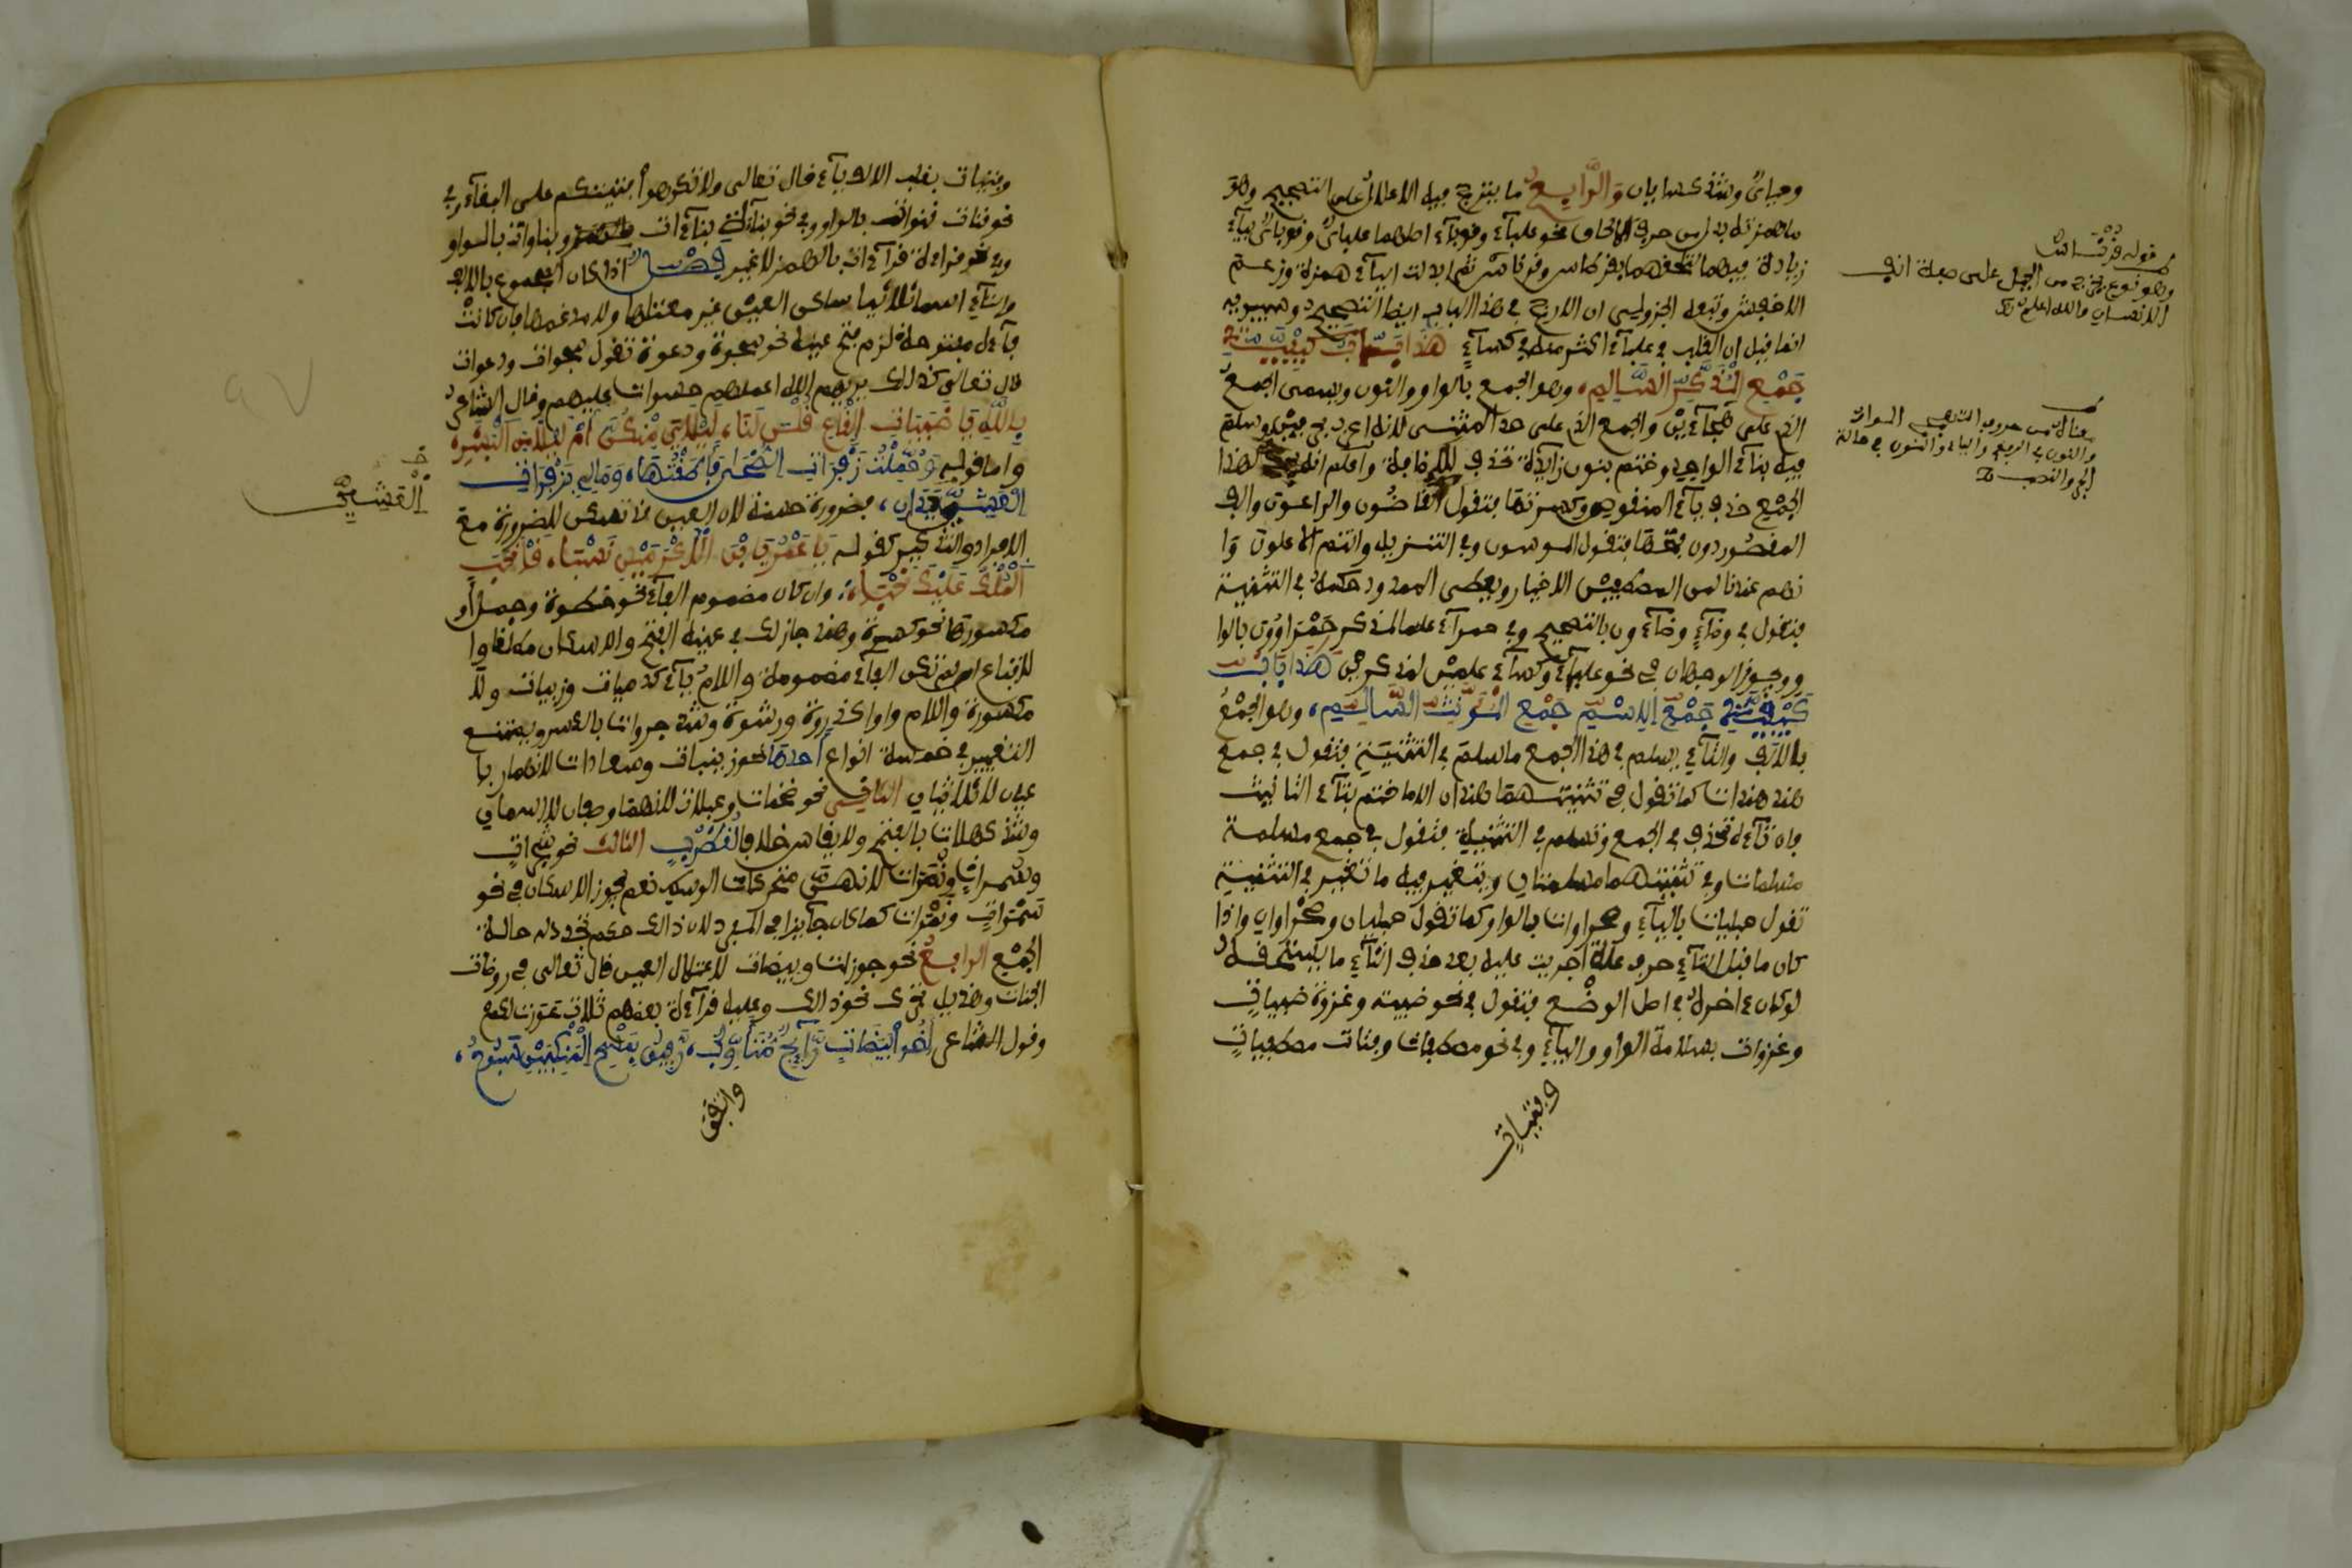 وحيائيٌ وشذ كسايان وَالرَّابِعُ ما يترجح فيه الاعلال على التصحيح وهو
ما همزته بدل من حرف الالحاق نحو علبآء وقوبآء اصلهما علباي وقوباي بيآء
زيادة فيهما لتلحقهما بقرطاس وقرناس ثم ابدلت اليآء همزة وزعم
الاخفش وتبعه الجزولي ان الارجح في هذا الباب ايضا التصحيح وسيبويه
انما قال ان القلب في علبآء اكثر منه في كسآء هَذَا بَابُ كَيْفِيَّةِ
جَمْعِ الْمُذَكَّرِ السَّالِمِ، وهو الجمع بالواو والنون ويسمى الجمع
الذي على هجآءين والجمع الذي على حد المثنى لانه اعرب بحرفين وسلم
فيه بنآء الواحد وختم بنون زآيدة تحذف للاضافة واعلم انه يحذف لهذا
الجمع حذف يآء المنقوص وكسرتها فتقول القاضُون والداعون والف
المقصور دون فتحتها فتقول الموسون وفي التنزيل وانتم الاعلون وَا
نهم عندنا لمن المصطفين الاخيار ويعطى الممدود حكمه في التثنية
فتقول في وضآء وضآءون بالتصحيح وفي حمرآء علما لمذكر حَمْرَاوُون بالوا
و ويجوز الوجهان في نحو علبآء وكسآء علمين لمذكرين هَذَا بَابُ
كَيْفِيَّةِ جَمْعِ الِاسْمِ جَمْعَ الْمُؤَنَّثِ السَّالِمِ، وهو الجمْعُ
بالالف والتآء يسلم في هذا الجمع ما سلم في التثنية فتقول في جمع
هند هندات كما تقول في تثنيتها هندان الا ما ختم بتآء التانيث
فان تآءه تحذف في الجمع وتسلم في التثنية فتقول في جمع مسلمة
مسلمات وفي تثنيتهما مسلمتان ويتغير فيه ما تغير في التثنية
تقول حبليات باليآء وصحراوات بالواو كما تقول حبليان وصحراوان واذا
كان ما قبل التآء حرف علة اجريت عليه بعد حذف التآء ما يستحقه
لو كان ءاخره في اصل الوضْع فتقول في نحو ظبية وغزوة ظبيات
وغزوات بسلامة الواو واليآء وفي نحو مصطفاة وفتاة مصطفيات
وفتيات
قوله قرناس
وهو نوع يخرج من الجبل على صفة انف
الانسان والله اعلم
والنون في الرفع واليآء والنون في حالة
الجر والنصب
وفتيات بقلب الالف يآء قال تعالى ولا تكرهوا فتيتكم على البغآء وفي
نحو قناة قنوات بالواو وفي نحو بنآء بنآءات وبناوات بالواو
وفي نحو قراءة قرآءات بالهمز لا غير فَصْلٌ اذا كان المجموع بالالف
والتآء اسما ثلاثيا ساكن العين غير معتلها ولا مدغمها فان كانت
فآءه مفتوحة لزم فتح عينه نحو سجدة ودعوة تقول سجدات ودعوات
قال تعالى كذلك يريهم الله اعملهم حسرات عليهم وقال الشاعر
بِاللَّهِ يَا ظَبَيَاتِ الْقَاعِ قُلْنَ لَنَا، لَيْلَايَ مِنْكُنَّ أَمْ لَيْلَى مِنَ الْبَشَرِ
واما قوله وَحُمِّلْتُ زَفْرَاتِ الضُّحَى فَأَطَقْتُهَا، وَمَالِي بِزَفْرَاتِ
الْعَشِيِّ يَدَانِ، فضرورة حسنة لان العين قد تسكن للضرورة مع
الافراد والتذكير كقوله يَا عَمْرُو يَا بْنَ الْأَكْرَمِينَ نَسْبَا، قَدْ نَحَبَ
الْمَجْدُ عَلَيْكَ نَحْبَا، وان كان مضموم الفآء نحو خطوة وجمل او
مكسورها نحو كسرة وهند جاز لك في عينه الفتح والاسكان مطلقا وا
لاتباع ان لم تكن الفآء مضمومة واللام يآء كدمية وزبية ولا
مكسورة واللام واوا كذروة ورشوة وشذ جروات بالكسر ويمتنع
التغيير في خمسة انواع أحدها نحو زينبات وسعادات لانهما ربا
عيان لا ثلاثيان الثاني نحو ضخمات وعبلات لانهما وصفان لا اسمان
وشذ كهلات بالفتح ولا ينقاس خلافا لقُطْرُبٍ الثالث نحو شجرات
وسمُرات ونَمِرات لانهن متحركات الوسط نعم يجوز الاسكان في نحو
سَمُرات ونَمِرات كما كان جآيزا في المفرد لان ذالك حكم تجدد له حالة
الجمْع الرابعُ نحو جوزات وبيضات لاعتلال العين قال تعالى في روضات
الجنات وهذيل تحرك نحو ذالك وعليه قرآءة بعضهم ثلاث عَوَرات لكم
وقول الشاعر أَخُو بَيَضَاتٍ رَائِحٌ مُتَأَوِّبٌ، رَفِيقٌ بِمَسْحِ الْمَنْكِبَيْنِ سَبُوحُ،
واتفق
الْعَشِيِّ
97